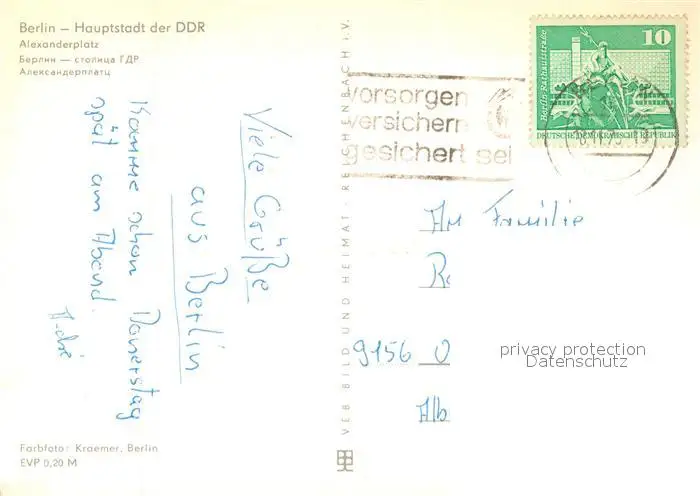 Berlin – Hauptstadt der DDR
Alexanderplatz
Берлин — столица ГДР
Александерплатц
Viele Grüße
aus Berlin
Komme schon Donerstag
spät am Abend.
VEB BILD UND HEIMAT · REICHENBACH i.V.
vorsorgen
versichern
gesichert sei
10
Berlin Rathausstraße
DEUTSCHE DEMOKRATISCHE REPUBLIK
An Familie
9156 O
Alb
privacy protection
Datenschutz
Farbfoto: Kraemer, Berlin
EVP 0,20 M